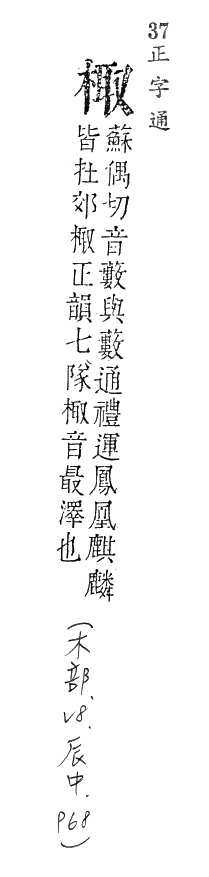 37正字通
棷
蘇偶切音藪與藪通禮運鳳凰麒麟
皆在郊棷正韻七隊棷音最澤也
(木部、v8.辰中.P68)